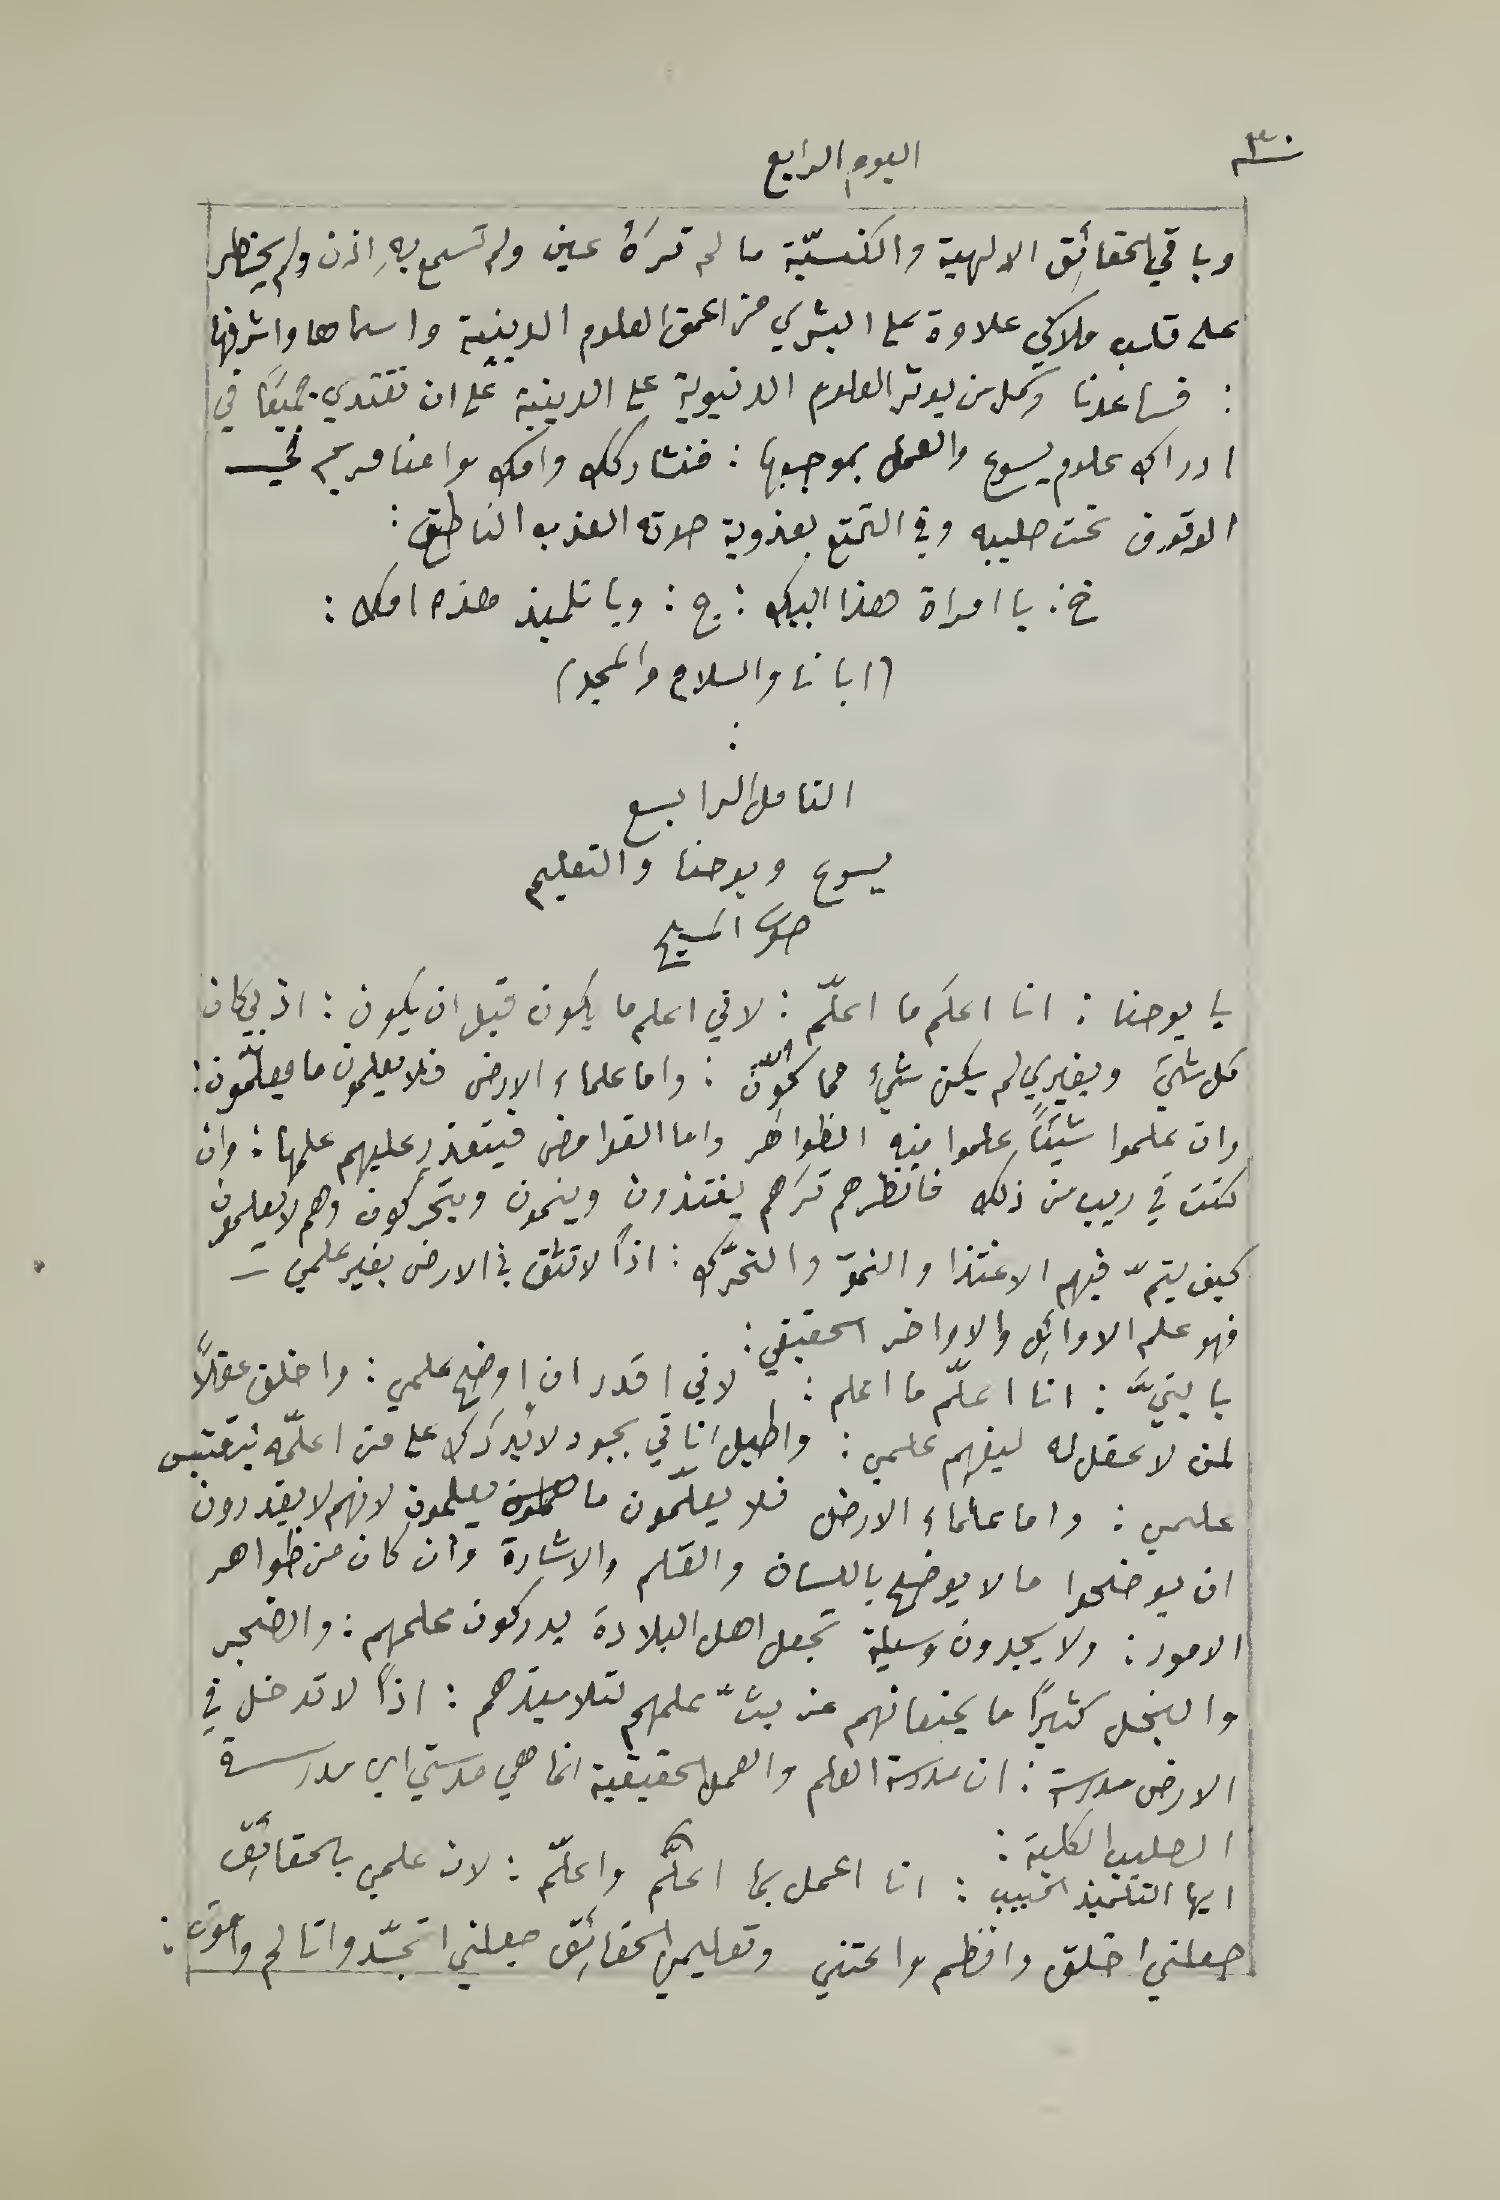 ٣٠
اليوم الرابع
وباقي الحقائق الالهية والكنسيّة ما لم ترَهُ عين ولم تسمع بهِ اذن ولم يخطر
على قلب ملاكي علاوة على البشري من اعمق العلوم الدينية واسماها واشرفها
: فساعدنا وكل من يوثر العلوم الدنيوية على الدينية على ان نقتدي جميعًا في
ادراك علوم يسوع والعمل بموجبها : فنشاركك وامك وامنا مريم في
الوقوف تحت صليبه وفي التمتع بعذوبة صوته العذب الناطق :
خ : يا امراة هذا ابنك : ج : ويا تلميذ هذه امك :
(ابانا والسلام والمجد)
:
التامل الرابع
يسوع ويوحنا والتعليم
صوت المسيح
يا يوحنا : انا اعلَم ما اعلّم : لاني اعلم ما يكون قبل ان يكون : اذ بي كان
كل شيء وبغيري لم يكن شيءٌ مما كُوّن : واما علماء الارض فلا يعلمون ما يعلّمون :
وان علموا شيئًا علموا منه الظواهر واما الغوامض فيتعذر عليهم علمها : وان
كنت في ريب من ذلك فانظرهم ترَهم يغتذون وينمون ويتحركون وهم لا يعلمون
كيف يتمّ فيهم الاغتذا والنموّ والتحرّك : اذًا لا تثق في الارض بغير علمي –
فهو علم الاوائل والاواخر الحقيقي :
يا بنيَّ : انا اعلّم ما اعلم : لاني اقدر ان اوضح علمي : واخلق عقلًا
لمن لا عقل له ليفهم علمي : واطيل اناتي بجود لا يُدرَك على من اعلّمه ليقتبس
علمي : واما علماء الارض فلا يعلّمون ما يعلمون لانهم لا يقدرون
ان يوضحوا ما لا يوضح باللسان والقلم والاشارة وان كان من ظواهر
الامور : ولا يجدون وسيلة تجعل اهل البلادة يدركون علمهم : والضجر
والبخل كثيرًا ما يمنعانهم عن بثّ علمهم لتلاميذهم : اذًا لا تدخل في
الارض مدرسة : ان مدرسة العلم والعمل الحقيقية انما هي مدرستي اي مدرسة
الصليب الكلية :
ايها التلميذ الحبيب : انا اعمل بما اعلَم واعلّم : لان علمي بالحقائق
جعلني اخلق وانظم واعتني وتعليمي الحقائق جعلني اتجسّد واتالم واموت :